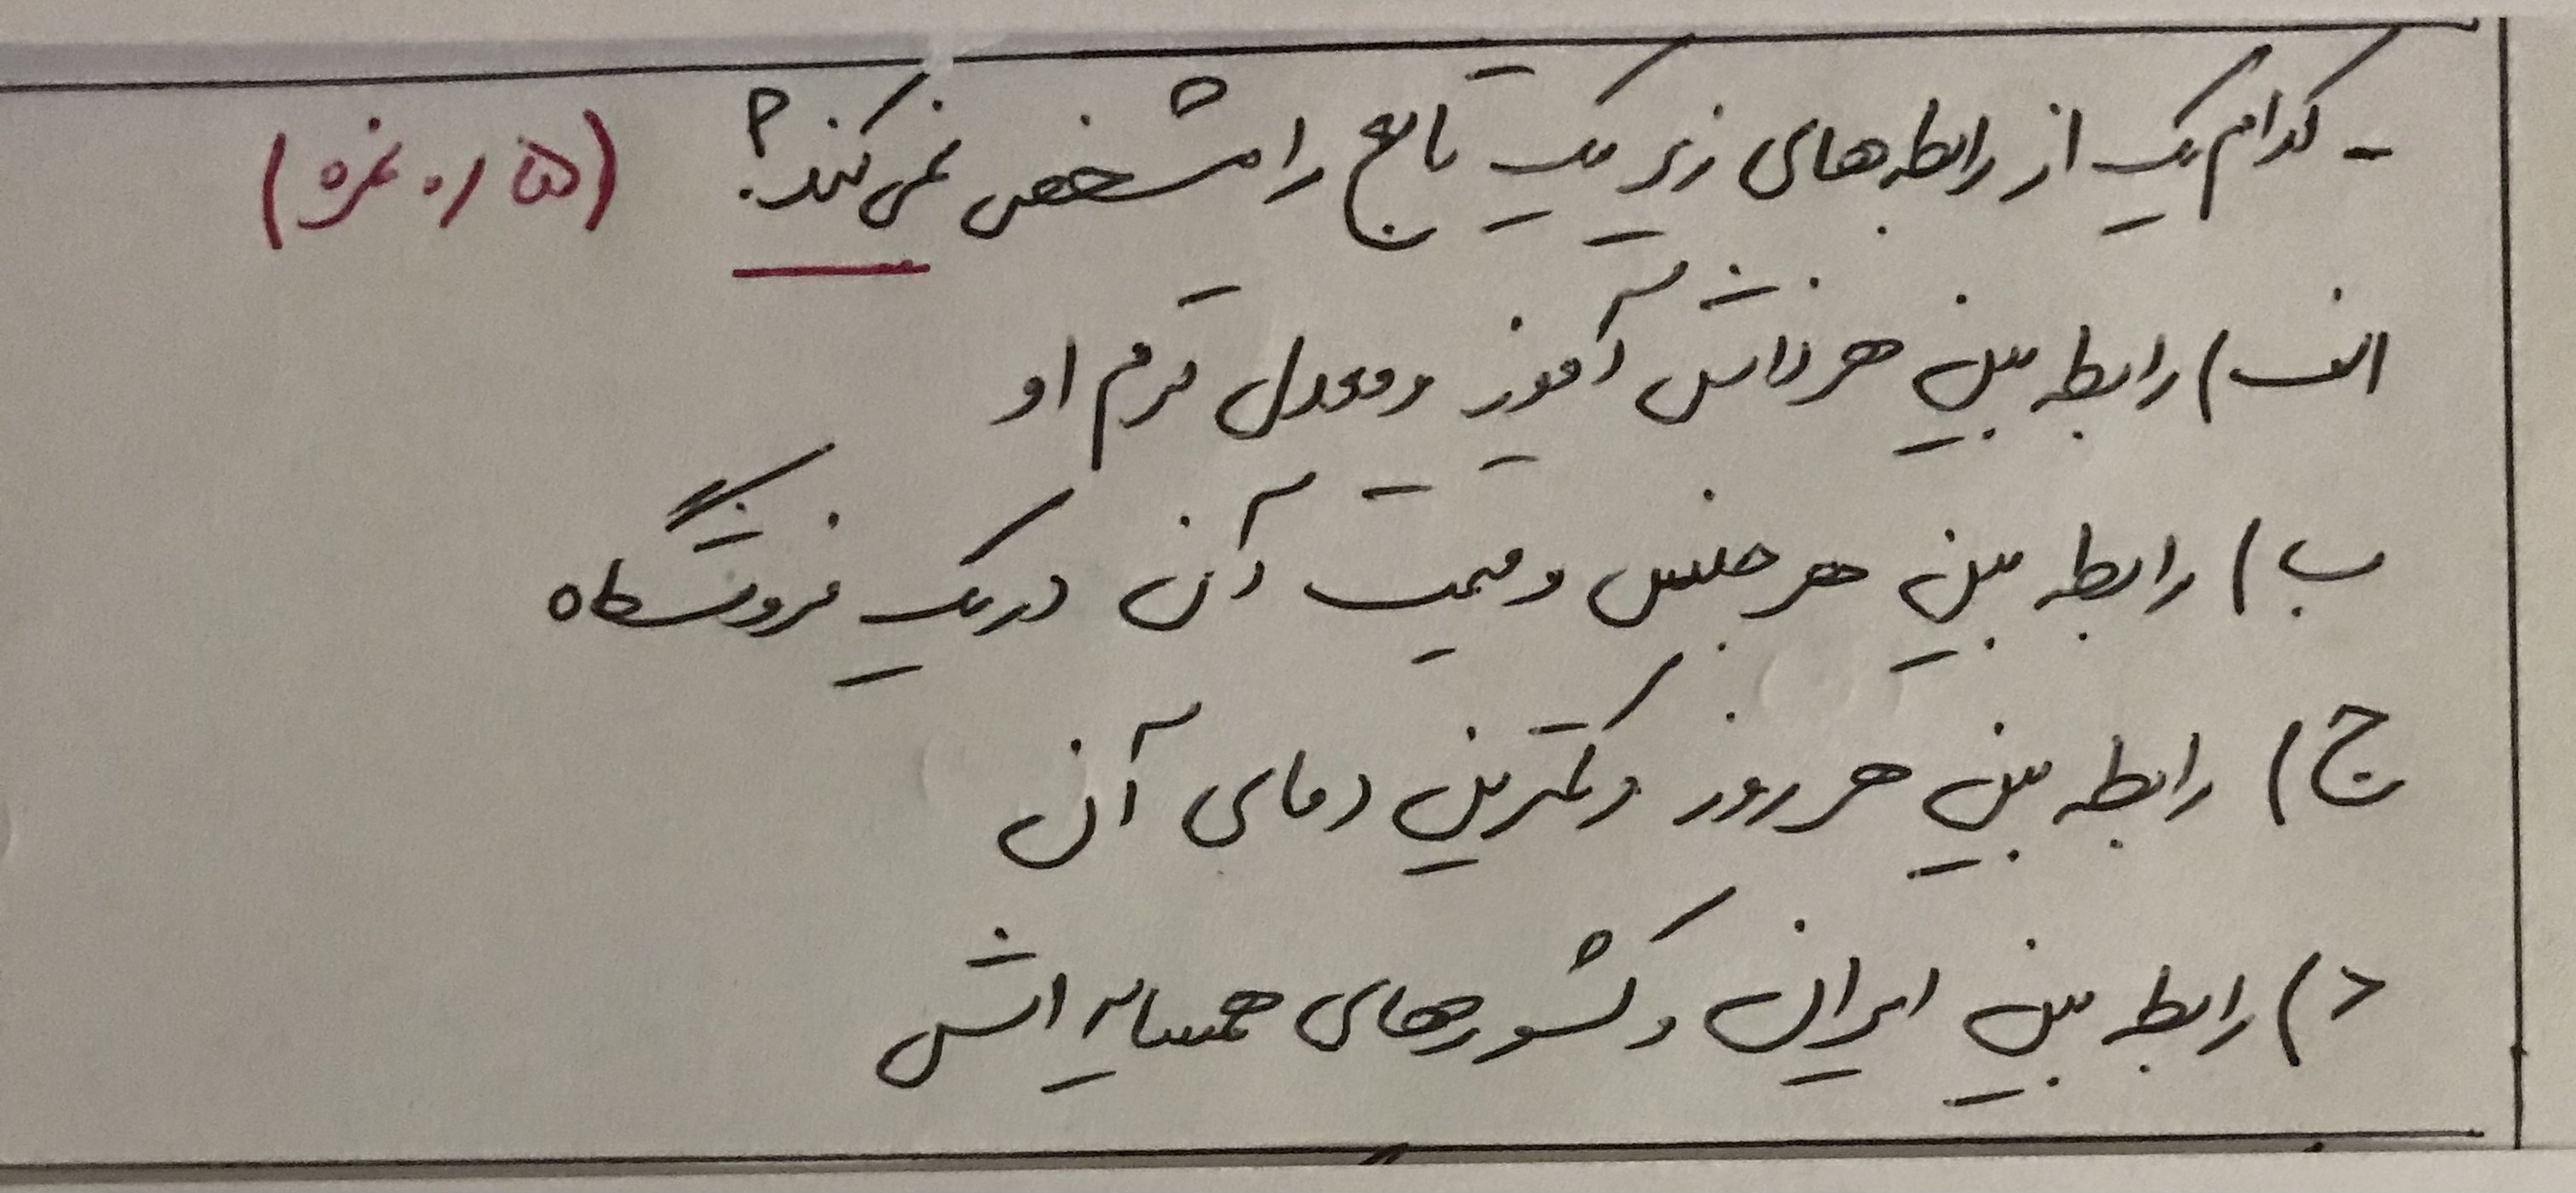 - کدام یک از رابطه‌های زیر یک تابع را مشخص نمی‌کند؟ (۰/۵ نمره)
الف) رابطه بین هر دانش آموز و معدل ترم او
ب) رابطه بین هر جنس و قیمت آن در یک فروشگاه
ج) رابطه بین هر روز و کمترین دمای آن
د) رابطه بین ایران و کشورهای همسایه اش